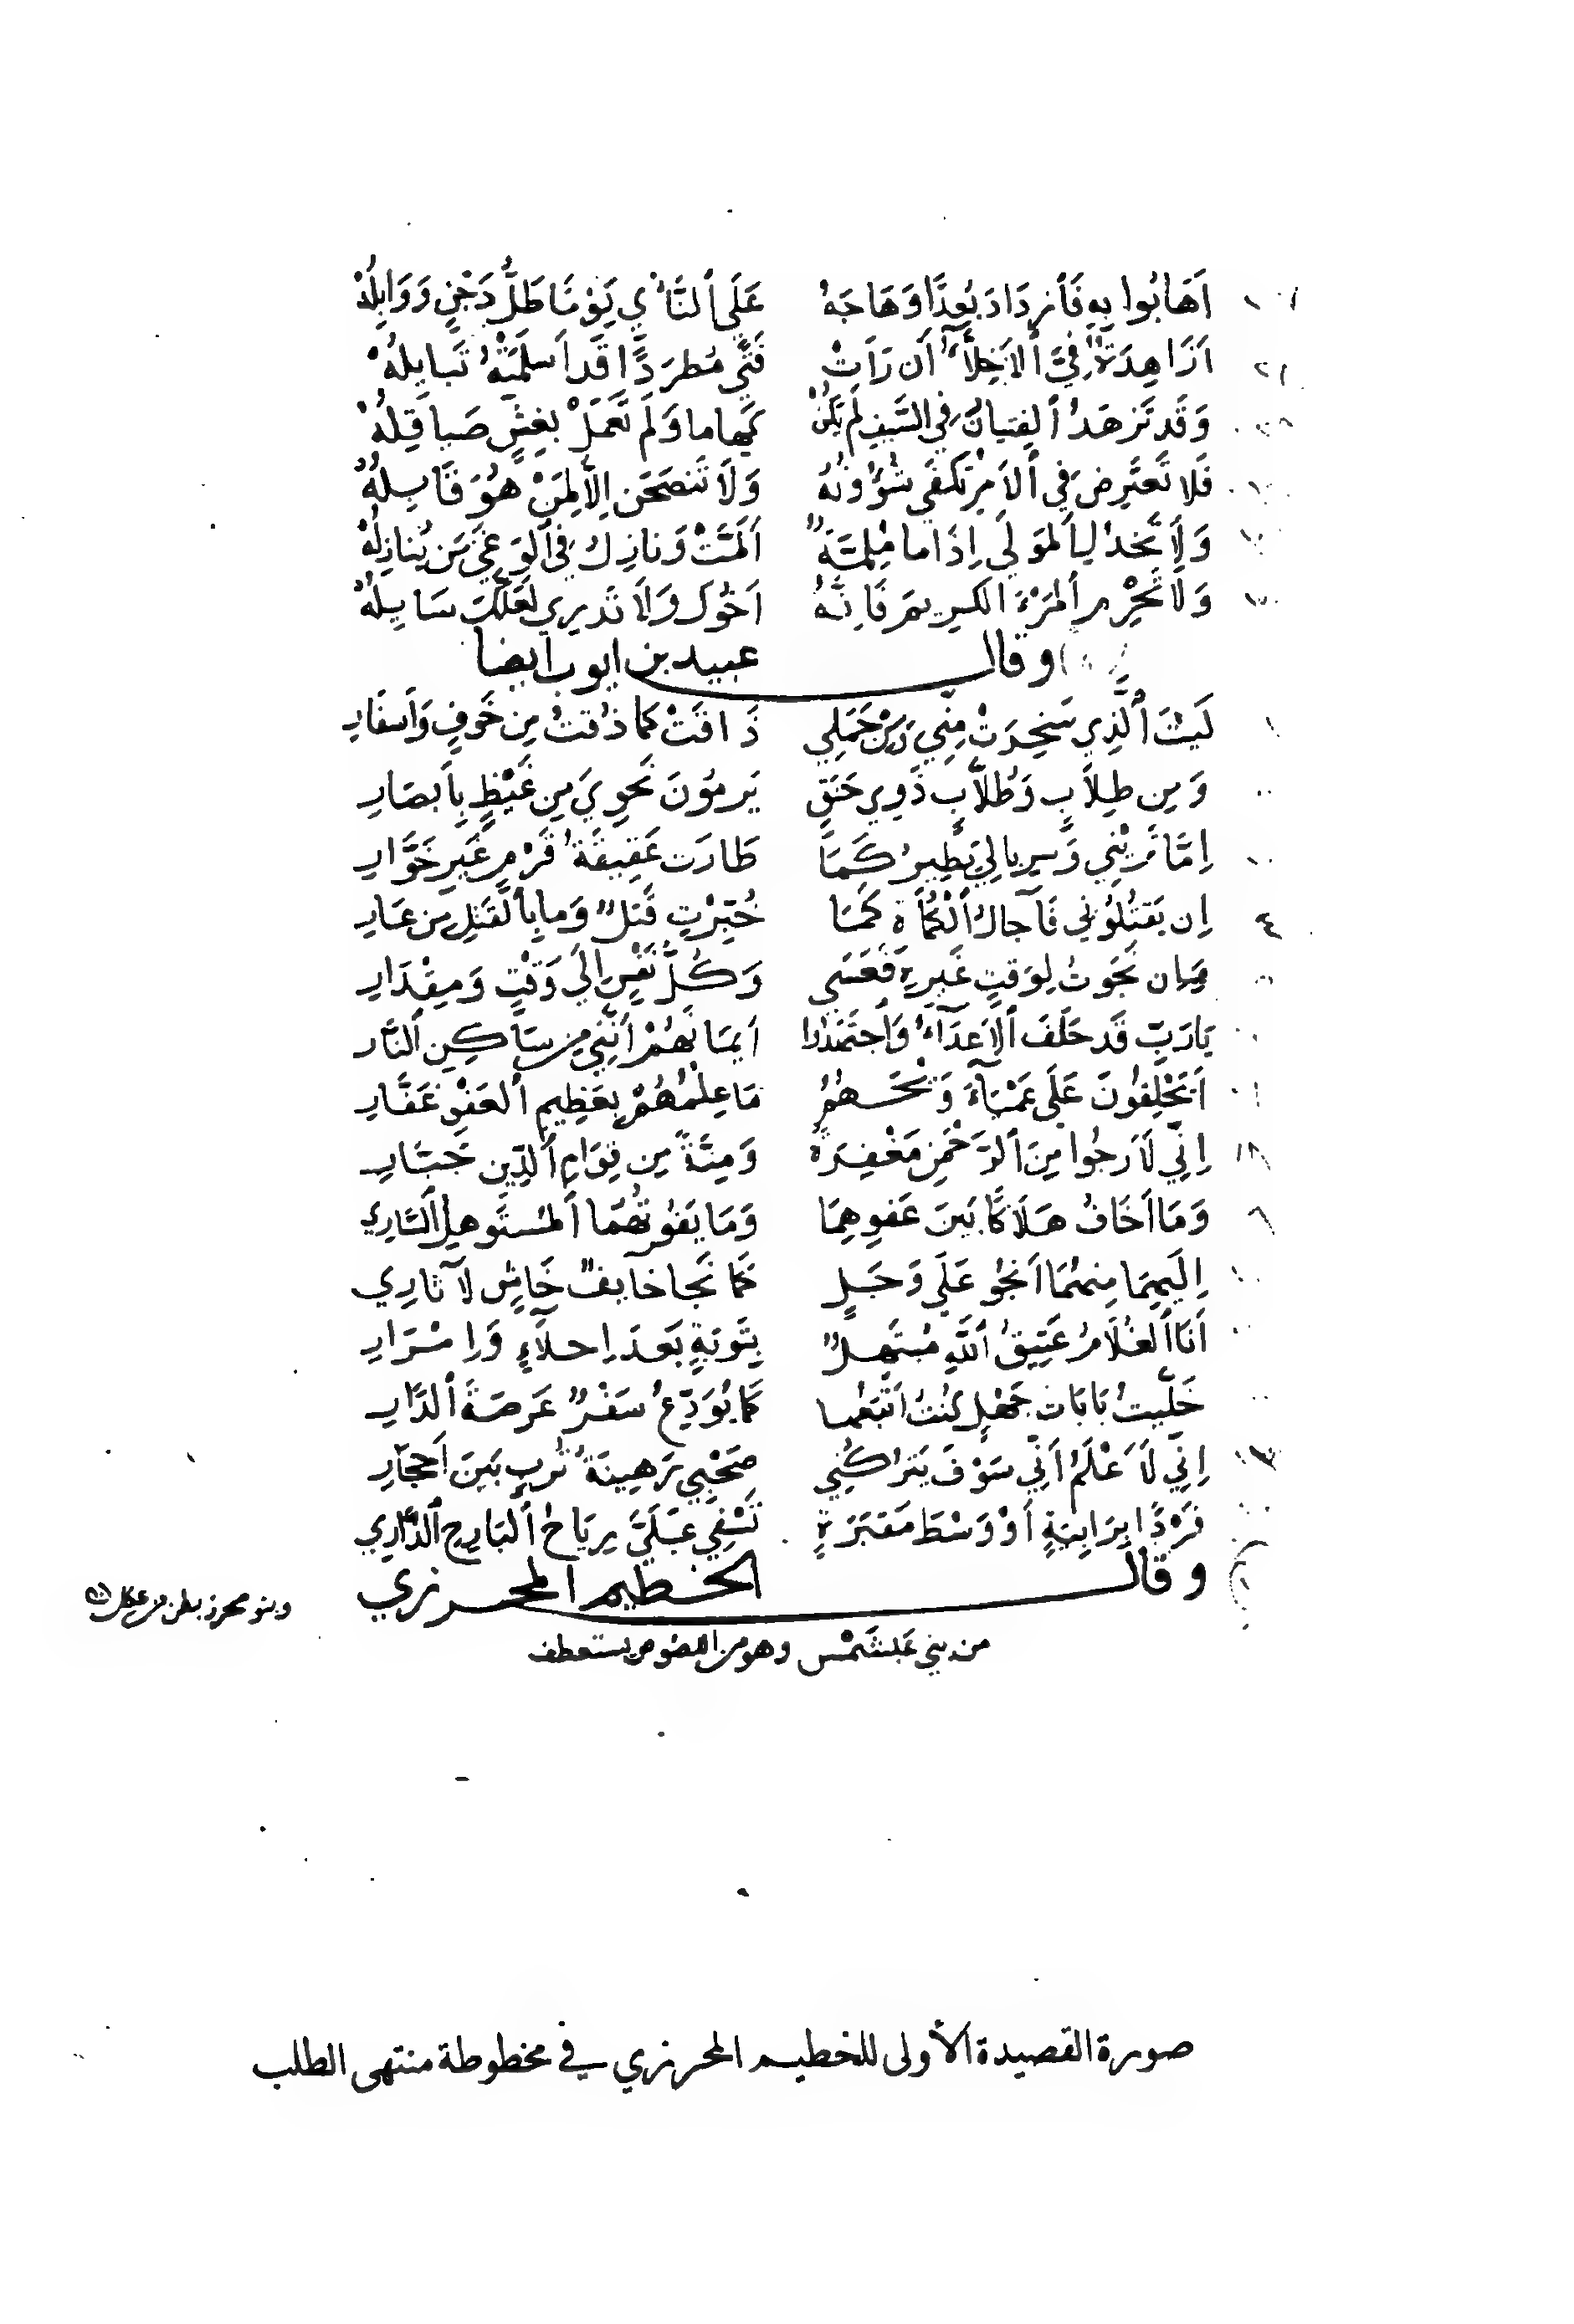 أَهَابُوا بِهِ فَأَزدَادَ بُعدًا وَهَاجَهُ عَلَى ٱلنَّأْيِ يَوْمًا طَلُّ دَجْنٍ وَوَابِلُهْ
أَزَاهِدَةٌ فِيَّ ٱلأَخِلَّآءُ أَن رَأَتْ فَتًى مُطرَدًا قَد أَسلَمَتْهُ قَبَايِلُهْ
وَقَد تَزهَدُ ٱلفِتيَانُ فِي السَّيفِ لَم يَكُنْ كَهَاما وَلَم تَعمَلْ بِغِشٍّ صَيَاقِلُهْ
فَلا تَعتَرِض فِي ٱلأَمرِ تُكفَى شُؤُونَهُ وَلَا تَنصَحَن إِلَّا لِمَنْ هُوَ قَابِلُهْ
وَلَا تَخذُلِ ٱلمَولَى إِذَا ما مُلِمَّةٌ أَلَمَّتْ وَنازِل فِي ٱلوَغَى مَن يُنازِلُهْ
وَلَا تَحْرِمِ ٱلمَرْءَ الكَرِيمَ فَإِنَّهُ أَخُوكَ وَلَا تَدرِي لَعَلَّكَ سَايِلُهْ
وقال عبيد بن ايوب ايضا
لَيتَ ٱلَّذِي سَخِرَتْ مِنِّي وَمِنْ جَمَلِي ذَاقَتْ كَمَا ذُقتُ مِن خَوفٍ وَأَسفَارِ
وَمِن طِلَابٍ وَطُلَّابٍ ذَوِي حَنَقٍ يَرمُونَ نَحوِيَ مِن غَيْظٍ بِأَبصَارِ
إِمَّا تَرَيْنِي وَسِربَالِي يَطِيرُ كَمَا طَارَت عَقِيقَةُ قَرْمٍ غَيرِ خَوَّارِ
٤ إِن يَقتُلُونِي فَآجالُ ٱلْكُمَاةِ كَمَا خُبِّرْتِ قَتلٌ وَما بِٱلقَتلِ مِن عَارِ
وَإِن نَجَوتُ لِوَقتٍ غَيرِهِ فَعَسَى وَكُلُّ نَفْسٍ إِلَى وَقْتٍ وَمِقْدَارِ
يَارَبِّ قَد حَلَفَ ٱلأَعدَآءُ وَٱجتَهَدُوا أَيمَانَهُمْ أَنَّنِي مِن سَاكِنِ ٱلنَّارِ
أَيَحْلِفُونَ عَلَى عَمْيَآءَ وَيْحَهُمُ مَا عِلْمُهُمْ بِعَظِيمِ ٱلعَفْوِ غَفَّارِ
إِنِّي لَأَرجُوا مِنَ ٱلرَّحْمٰنِ مَغْفِرَةً وَمِنَّةً مِن قِوَامِ ٱلدِّينِ جَبَّارِ
وَمَا أَخَافُ هَلَاكًا بَينَ عَفوِهِمَا وَمَا يَفُوتُهُمَا ٱلمُستَوهِلُ ٱلسَّارِي
إِلَيهِمَا مِنهُمَا أَنجُو عَلَى وَجَلٍ كَمَا نَجَا خايِفٌ خَاشٍ لآثارِي
أَنَا ٱلغُلَامُ عَتِيقُ ٱللَّهِ مُبتَهِلٌ بِتَوبَةٍ بَعدَ إِحلَآءٍ وَإِمْرَارِ
خَلَّيتُ بَابَاتِ جَهْلٍ كُنتُ أَتبَعُها كَمَا يُوَدِّعُ سَفْرٌ عَرصَةَ ٱلدَّارِ
إِنِّي لَأَعْلَمُ أَنِّي سَوْفَ يَترُكُنِي صَحْبِي رَهِينَةَ تُربٍ بَينَ أَحجَارِ
فَرْدًا بِرَابِيَةٍ أَوْ وَسْطَ مَقبَرَةٍ تَسْفِي عَلَيَّ رِيَاحُ ٱلبَارِحِ ٱلذَّارِي
وقال الخطيم المحرزي
وبنو محرز بطن من عكل
من بني عَبشَمْس وهو من اللصوص يستعطف
صورة القصيدة الأولى للخطيم المحرزي في مخطوطة منتهى الطلب